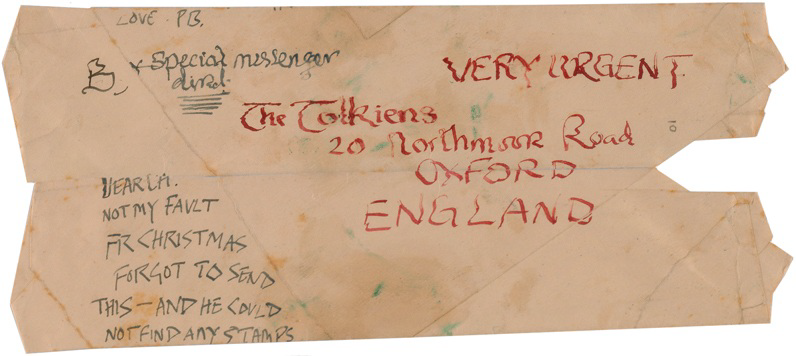 LOVE. P.B.
By special messenger
direct
VERY URGENT.
The Tolkiens
20 Northmoor Road
OXFORD
ENGLAND
10
DEAR CH.
NOT MY FAULT
FR CHRISTMAS
FORGOT TO SEND
THIS — AND HE COULD
NOT FIND ANY STAMPS